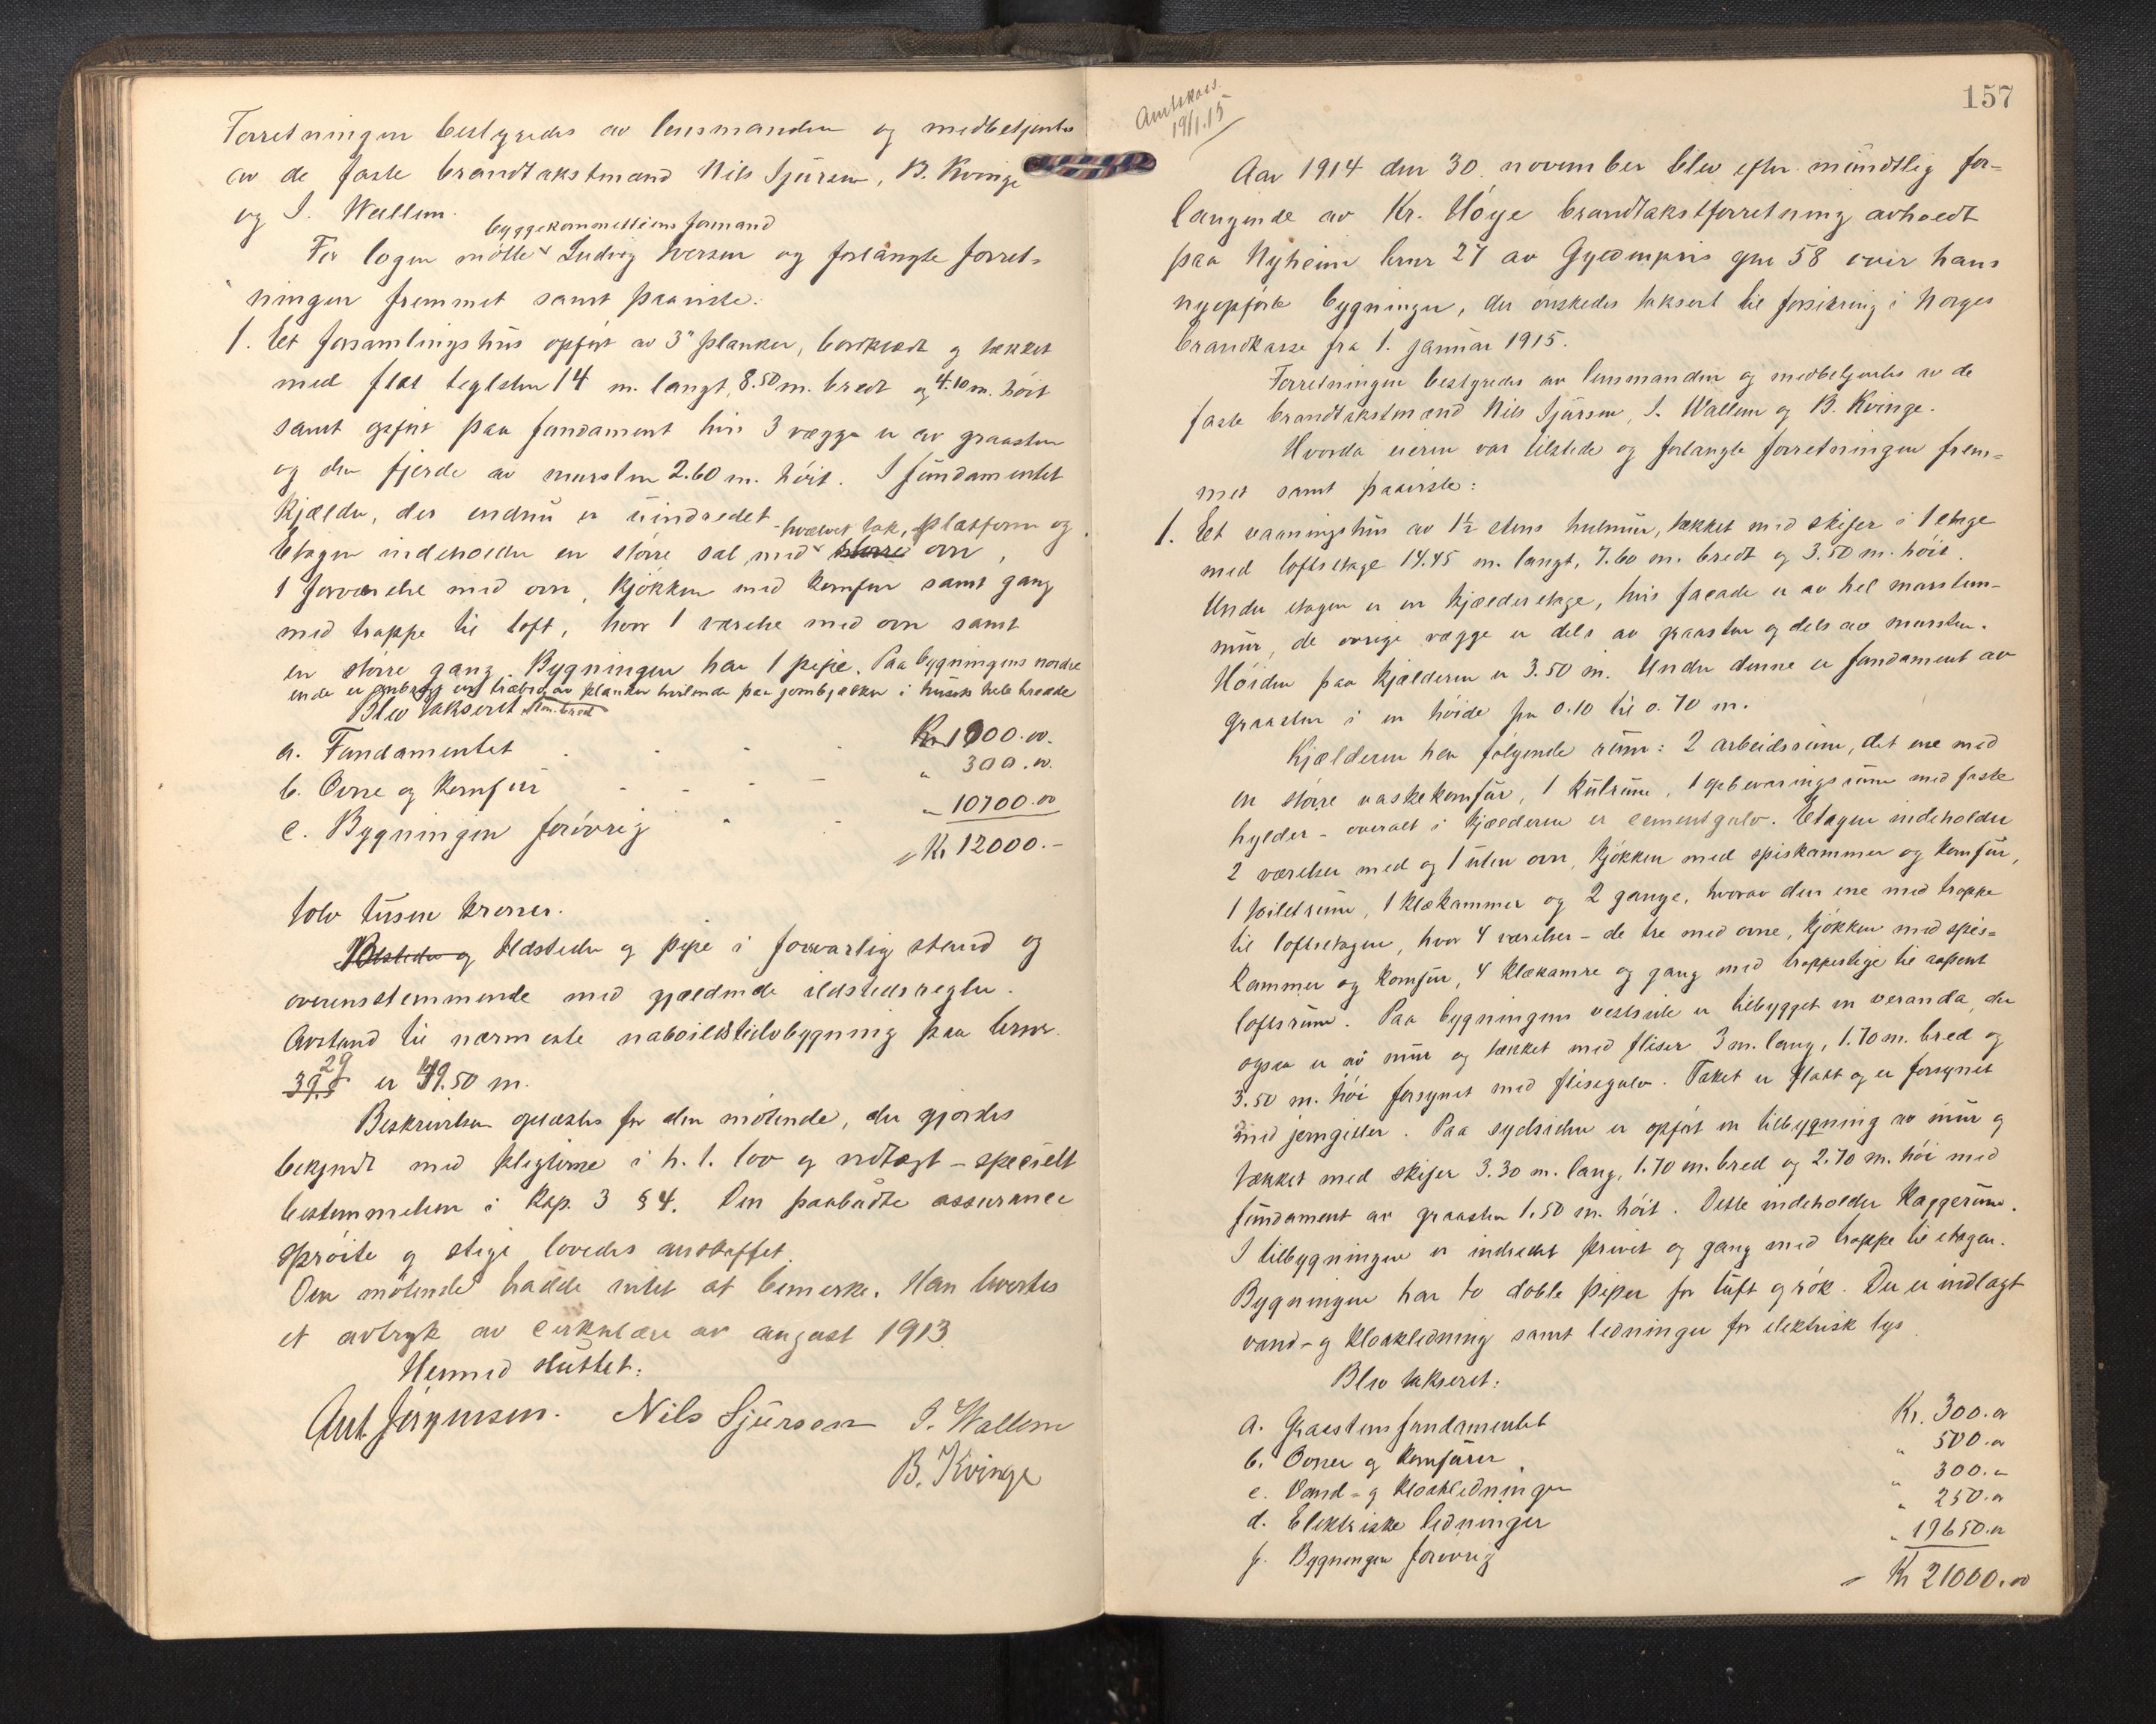 Forretningen bestyredes av lensmanden og medbetjentes
av de faste brandtakstmænd Nils Sjursen, B. Kvinge
og I. Wallem.
byggekommitteens formand
For logen mötte Ludvig Iversen og forlangte forret-
ningen fremmet samt paaviste:
1. Et forsamlingshus opfört av 3" planker, bordklædt og tækket
med flat teglsten 14 m. langt, 8.50 m. bredt og 4.10 m. höit
samt opfört paa fundament hvis 3 vægge er av graasten
og den fjerde av mursten 2.60 m. höit. I fundamentet
kjælder, der endnu er uindredet.
hvælvet tak, platform og
Etagen indeholder en större sal med större ovn,
1 forværelse med ovn, kjökken med komfur samt gang
med trappe til loft, hvor 1 værelse med ovn samt
en större gang. Bygningen har 1 pipe. Paa bygningens nordre
ende er anbragt en træbro av planker hvilende paa jernbjælker i husets hele bredde
Blev takseret
a. Fundamentet Kr 1000.00.
b. Ovne og komfur " 300.00.
c. Bygningen forövrig " 10700.00
= Kr 12000.-
tolv tusen kroner.
Ildsteder og Ildsteder og pipe i forsvarlig stand og
overensstemmende med gjældende ildstedsregler.
Avstand til nærmeste naboildstedsbygning paa brnr
39 29 er 49.50 m.
Beskrivelsen oplæstes for den mötende, der gjordes
bekjendt med pligterne i h. t. lov og vedtægt - specielt
bestemmelsen i kap. 3 § 4. Den paabudte assurance
spröite og stige lovedes anskaffet.
Den mötende hadde intet at bemerke. Han leveertes
et avtryk av cirkulære av august 1913.
Hermed sluttet:
Ant Jörgensen. Nils Sjursen I. Wallem
B. Kvinge
157
19/1.15
Aar 1914 den 30. november blev efter mundtlig for-
langende av Kr. Höye brandtakstforretning avholdt
paa Nyheim brnr 27 av Gyldenpris gnr 58 over hans
nyopförte bygninger, der önskedes taksert til forsikring i Norges
Brandkasse fra 1. januar 1915.
Forretningen bestyredes av lensmanden og medbetjentes av de
faste brandtakstmænd Nils Sjursen, I. Wallem og B. Kvinge.
Hvorda eieren var tilstede og forlangte forretningen frem-
met samt paaviste:
1. Et vaaningshus av 1½ stens hulmur, tækket med skifer i 1 etage
med loftsetage 14.45 m. langt, 7.60 m. bredt og 3.50 m. höit.
Under etagen er en kjælderetage, hvis facade er av hel murstens-
mur, de övrige vægge er dels av graasten og dels av mursten.
Höiden paa kjælderen er 3.50 m. Under denne er fundament av
graasten i en höide fra 0.10 til 0.70 m.
Kjælderen har fölgende rum: 2 arbeidsrum, det ene med
en större vaskekomfur, 1 kulrum, 1 opbevaringsrum med faste
hylder - overalt i kjælderen er cementgulv. Etagen indeholder
2 værelser med og 1 uten ovn, kjökken med spiskammer og komfur,
1 toiletrum, 1 klækammer og 2 gange, hvorav den ene med trappe
til loftsetagen, hvor 4 værelser - de tre med ovne, kjökken med spis-
kammer og komfur, 4 klækamre og gang med trappestige til aapent
loftsrum. Paa bygningens vestside er tilbygget en veranda, der
ogsaa er av mur og tækket med fliser 3 m. lang, 1.70 m. bred og
3.50 m. höi forsynet med flisegulv. Taket er flatt og er forsynet
med jerngitter. Paa sydsiden er opfört en tilbygning av mur og
tækket med skifer 3.30 m. lang, 1.70 m. bred og 2.70 m. höi med
fundament av graasten 1.50 m. höit. Dette indeholder kaggerum.
I tilbygningen er indredet privet og gang med trappe til etagen.
Bygningen har to doble piper for luft og rök. Der er indlagt
vand- og kloakledning samt ledninger for elektrisk lys
Blev takseret:
a. Graastensfundamentet Kr. 300.00
b. Ovner og komfurer " 500.00
c. Vand- og kloakledninger " 300.00
d. Elektriske ledninger " 250.00
f. Bygningen forövrig " 19650.00
= Kr 21000.00